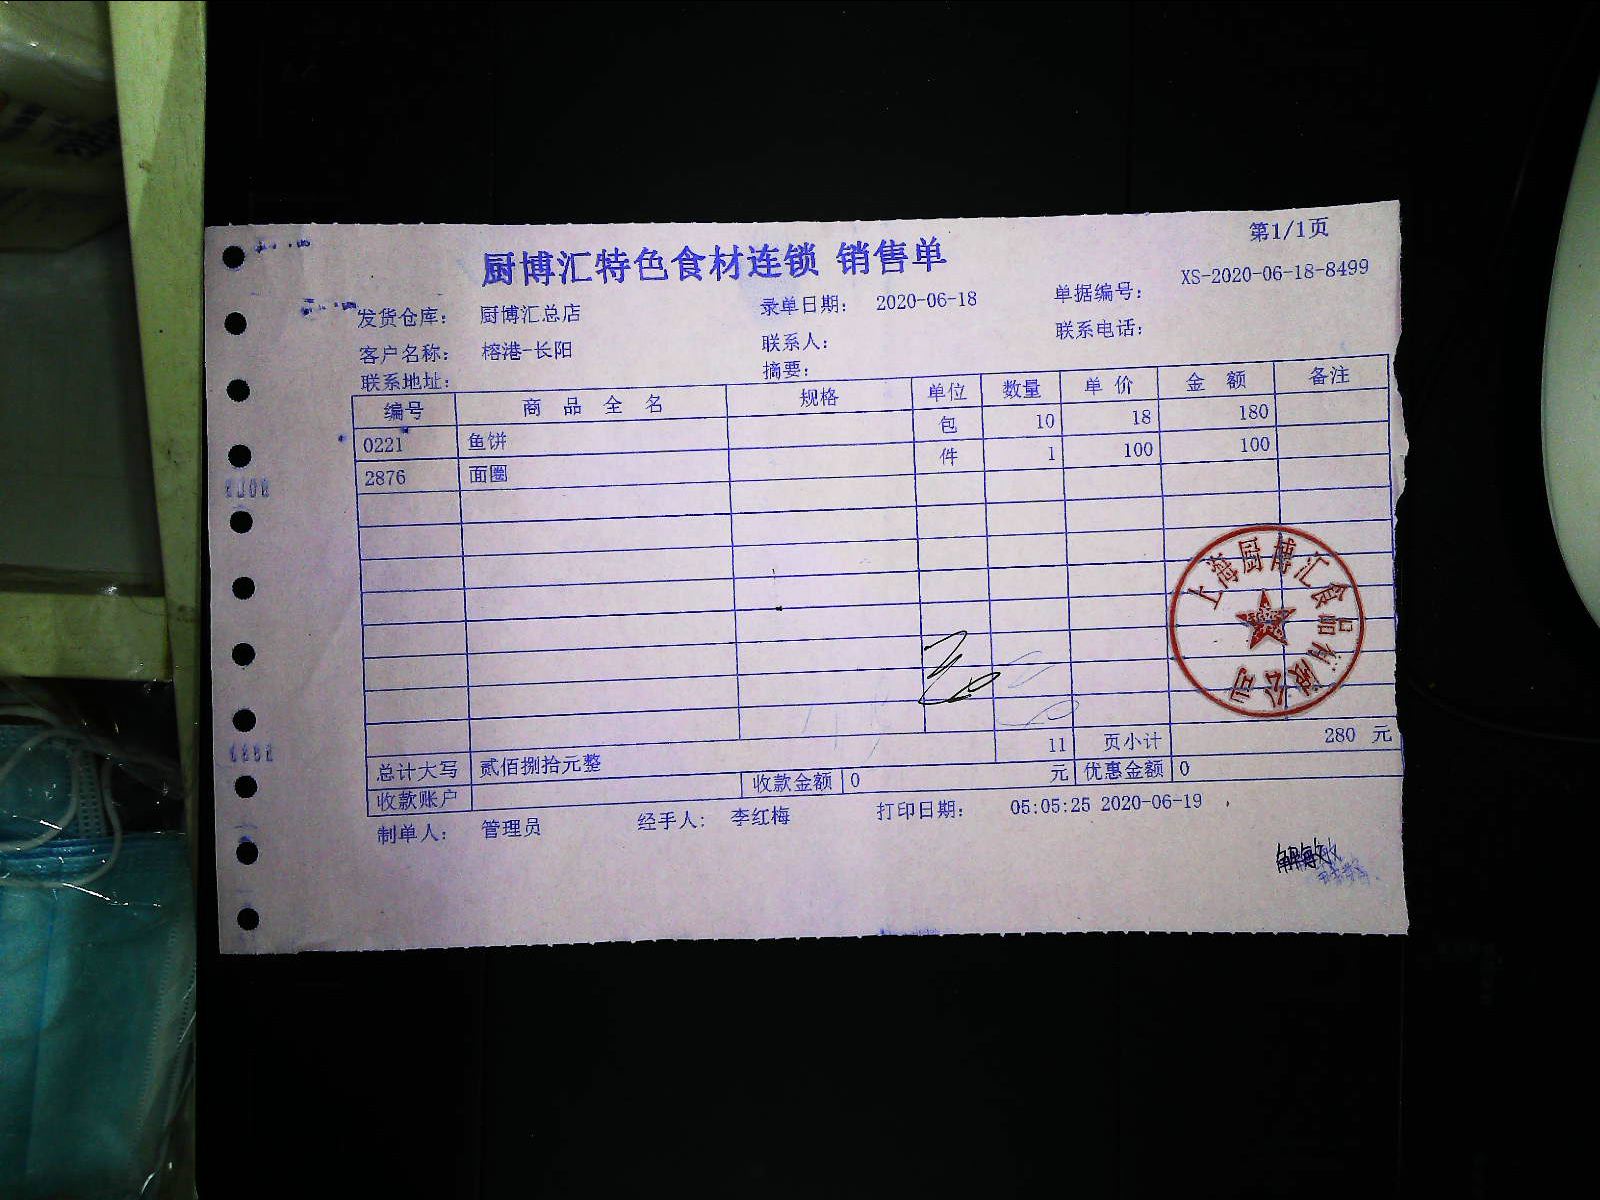 第1/1页
厨博汇特色食材连锁 销售单
发货仓库： 厨博汇总店 录单日期： 2020-06-18 单据编号： XS-2020-06-18-8499
客户名称： 榕港-长阳 联系人： 联系电话：
联系地址： 摘要：
编号 商品全名 规格 单位 数量 单价 金额 备注
0221 鱼饼 包 10 18 180
2876 面圈 件 1 100 100
上海厨博汇食品有限公司
11 页小计 280 元
总计大写 贰佰捌拾元整
收款账户 收款金额 0 元 优惠金额 0
制单人： 管理员 经手人： 李红梅 打印日期： 05:05:25 2020-06-19